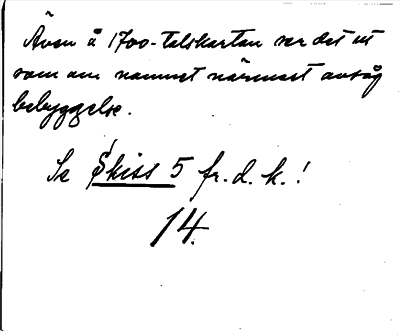 Även å 1700-talskartan ser det ut
som om namnet närmast avsåg
bebyggelse.
Se Skiss 5 fr. d. k.!
14.